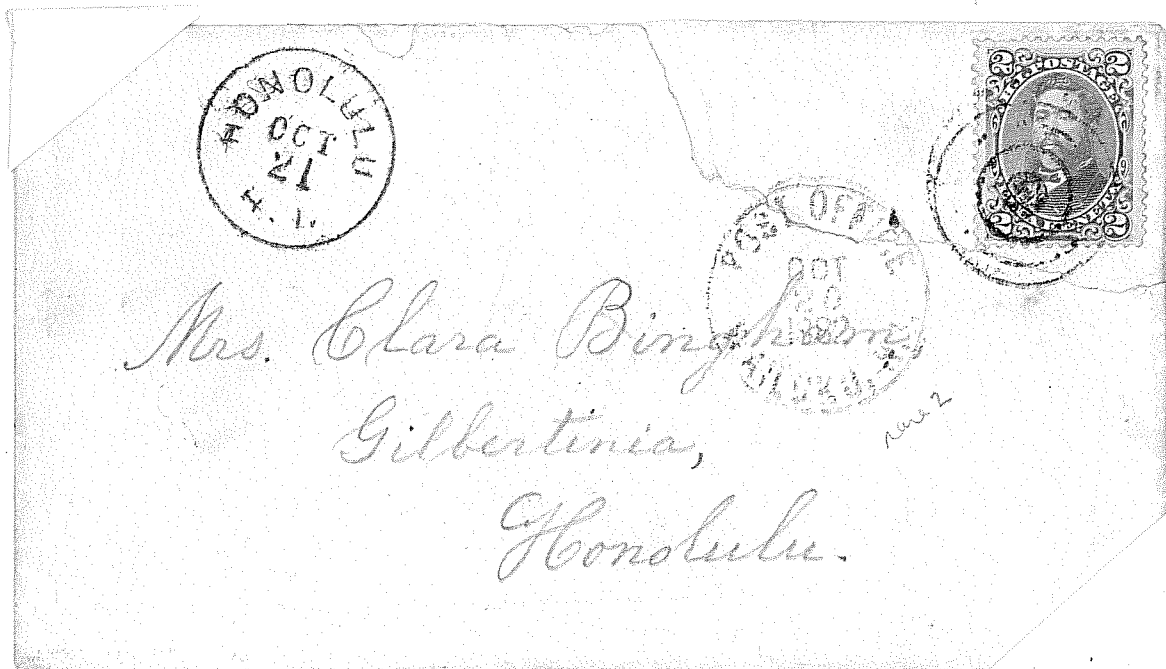 HONOLULU
OCT
21
H. I.
2 POSTAGE 2
2 2
POST OFFICE
OCT
Mrs. Clara Bingham,
Gilbertinia,
Honolulu.